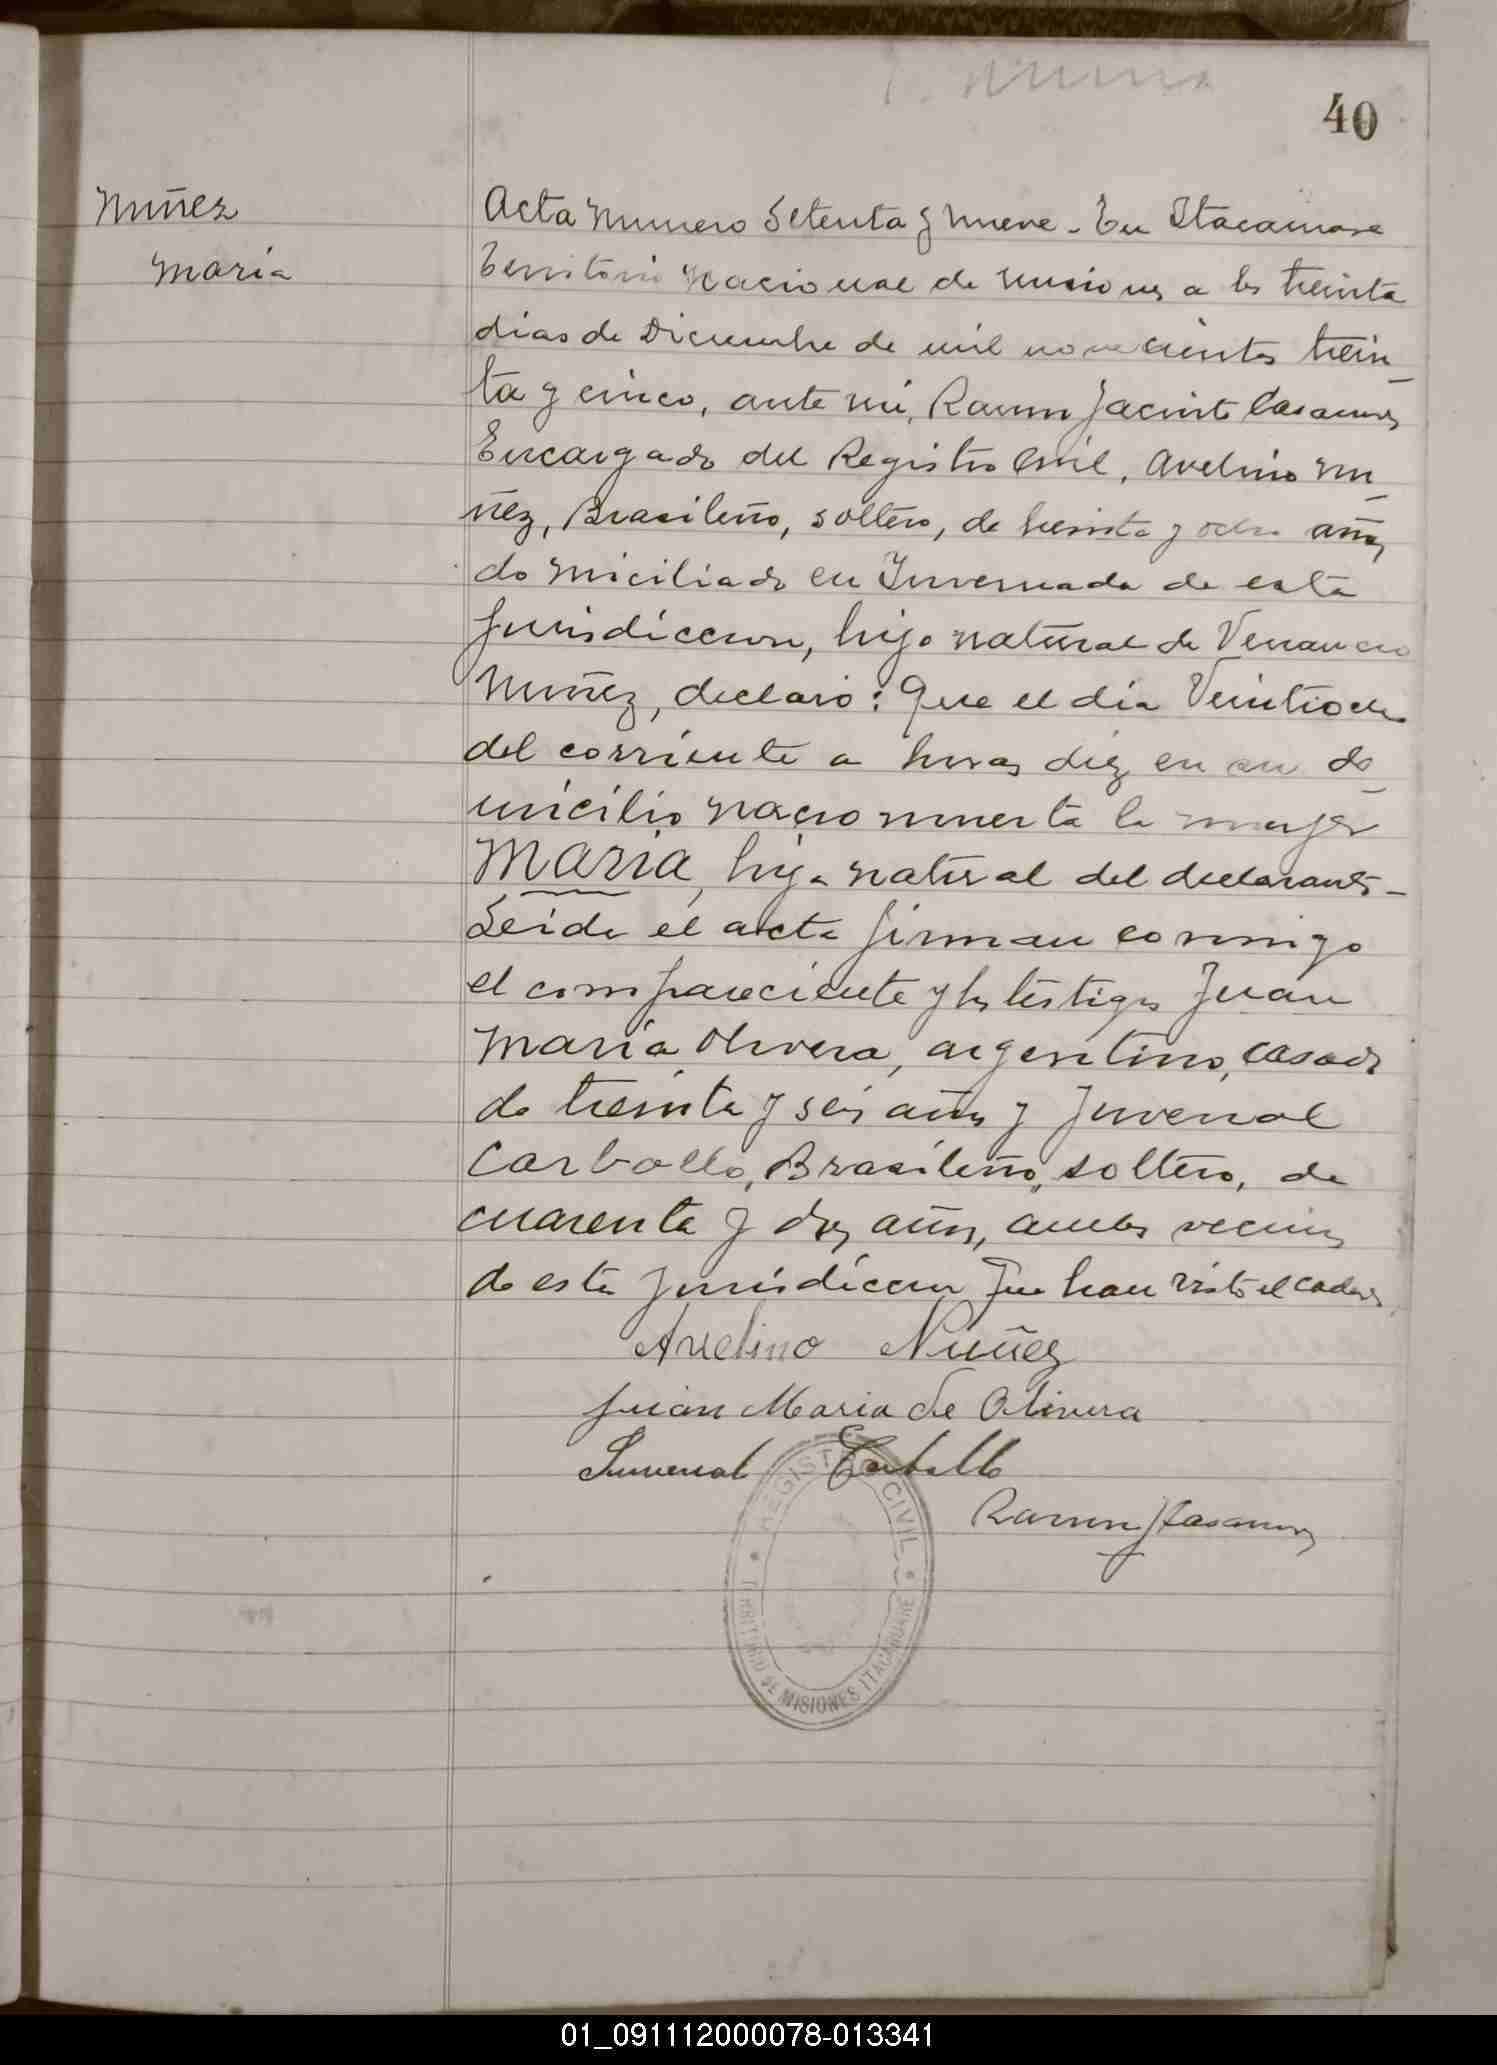 40
Nuñez
Maria
Acta Numero Setenta y nueve - En Itacaruare
Territorio Nacional de Misiones a los treinta
dias de Diciembre de mil novecientos trein_
ta y cinco, ante mi, Ramon Jacinto Casamus
Encargado del Registro Civil, Avelino Nu_
ñez, Brasileño, soltero, de treinta y ocho años
domiciliado en Invernada de esta
jurisdiccion, hijo natural de Venancio
Nuñez, declaro: Que el dia Veintiocho
del corriente a horas diez en su do_
micilio nacio muerta la mujer
Maria, hija natural del declarante -
Leida el acta firman conmigo
el compareciente y los testigos Juan
Maria Olivera, argentino, casado
de treinta y seis años y Juvenal
Carballo, Brasileño, soltero, de
cuarenta y dos años, ambos vecinos
de esta jurisdiccion que han visto el cadaver
Avelino Nuñez
Juan Maria de Olivera
Juvenal Carballo
Ramon J
REGISTRO CIVIL
TERRITORIO DE MISIONES ITACARUARE
01_091112000078-013341